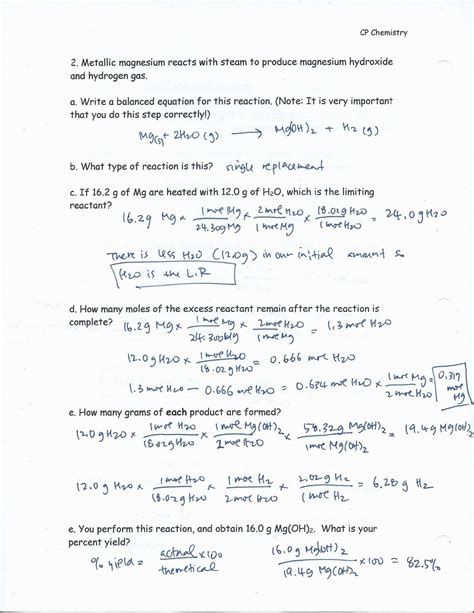 CP Chemistry
2. Metallic magnesium reacts with steam to produce magnesium hydroxide
and hydrogen gas.
a. Write a balanced equation for this reaction. (Note: It is very important
that you do this step correctly!)
Mg(s) + 2H2O(g) → Mg(OH)2 + H2(g)
b. What type of reaction is this? single replacement
c. If 16.2 g of Mg are heated with 12.0 g of H2O, which is the limiting
reactant?
16.2g Mg × 1 mol Mg / 24.30g Mg × 2 mol H2O / 1 mol Mg × 18.02g H2O / 1 mol H2O = 24.0g H2O
There is less H2O (12.0g) in our initial amount so
H2O is the L.R
d. How many moles of the excess reactant remain after the reaction is
complete? 16.2g Mg × 1 mol Mg / 24.300g Mg × 2 mol H2O / 1 mol Mg = 1.3 mol H2O
12.0g H2O × 1 mol H2O / 18.02g H2O = 0.666 mol H2O
1.3 mol H2O - 0.666 mol H2O = 0.634 mol H2O × 1 mol Mg / 2 mol H2O = 0.317 mol Mg
e. How many grams of each product are formed?
12.0g H2O × 1 mol H2O / 18.02g H2O × 1 mol Mg(OH)2 / 2 mol H2O × 58.32g Mg(OH)2 / 1 mol Mg(OH)2 = 19.4g Mg(OH)2
12.0g H2O × 1 mol H2O / 18.02g H2O × 1 mol H2 / 2 mol H2O × 2.02g H2 / 1 mol H2 = 6.28g H2
e. You perform this reaction, and obtain 16.0 g Mg(OH)2. What is your
percent yield?
% yield = actual / theoretical × 100 16.0g Mg(OH)2 / 19.4g Mg(OH)2 × 100 = 82.5%